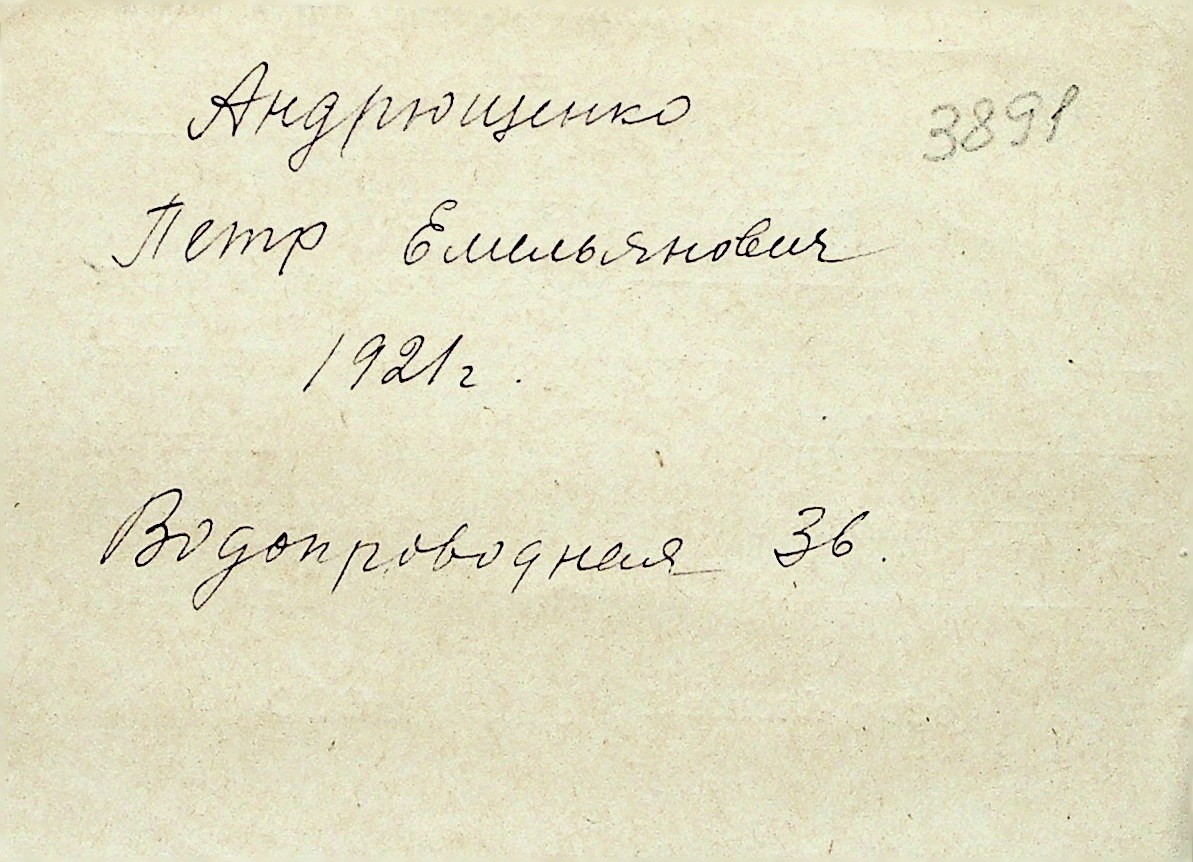 Андрющенко
3891
Петр Емельянович
1921г.
Водопроводная 36.